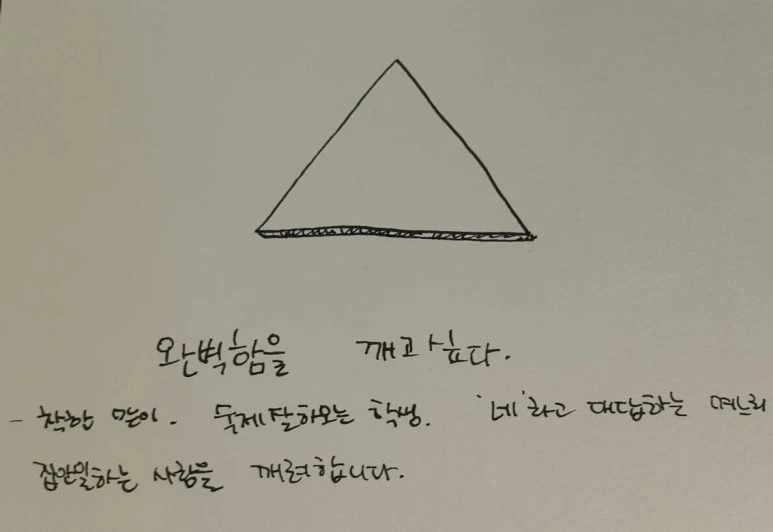 완벽함을 깨고 싶다.
- 착한 맏이. 숙제잘해오는 학생. '네'하고 대답하는 며느리
집안일하는 사람을 깨려합니다.